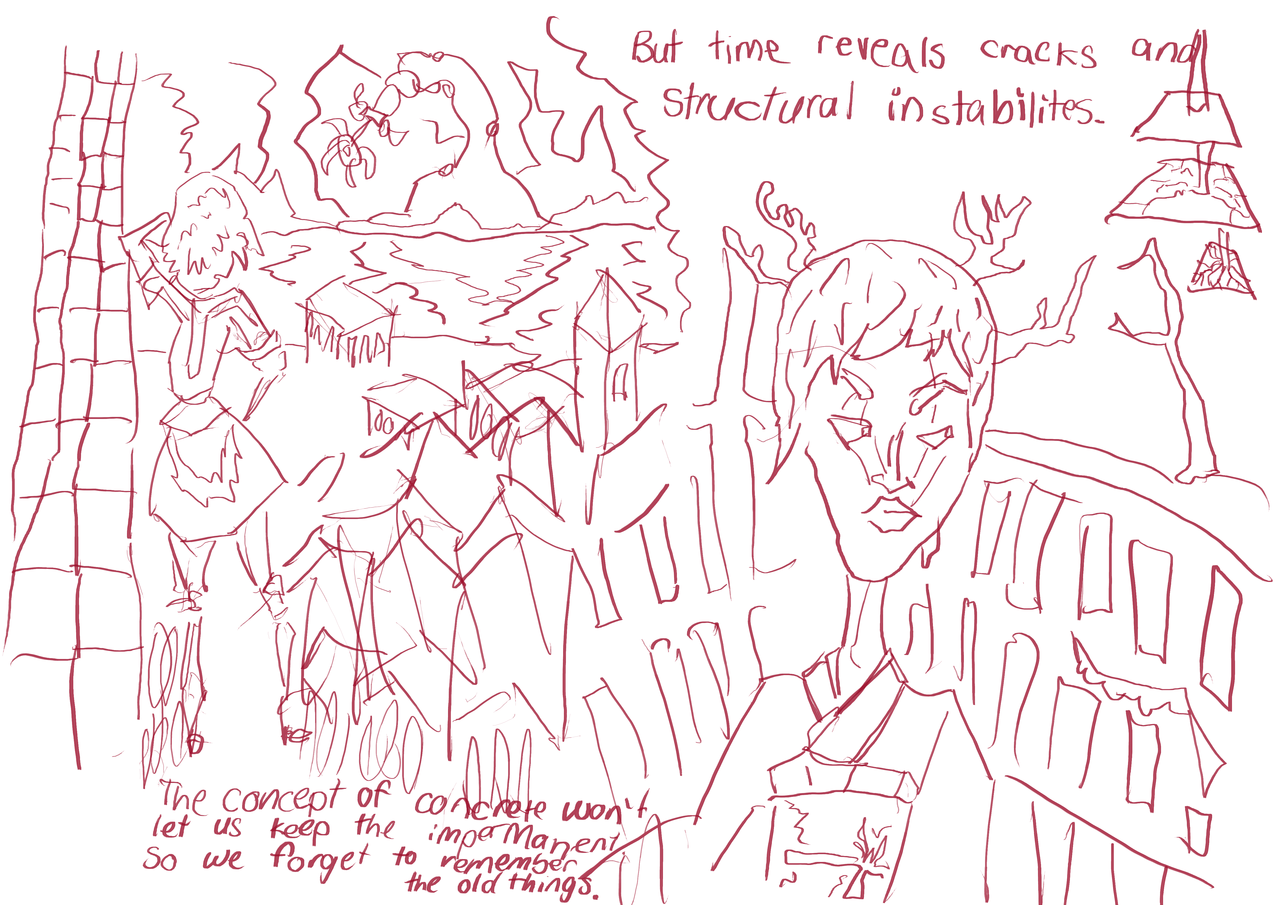 But time reveals cracks and
structural instabilites.
The concept of concrete won't
let us keep the imperManent
So we forget to remember
the old things.